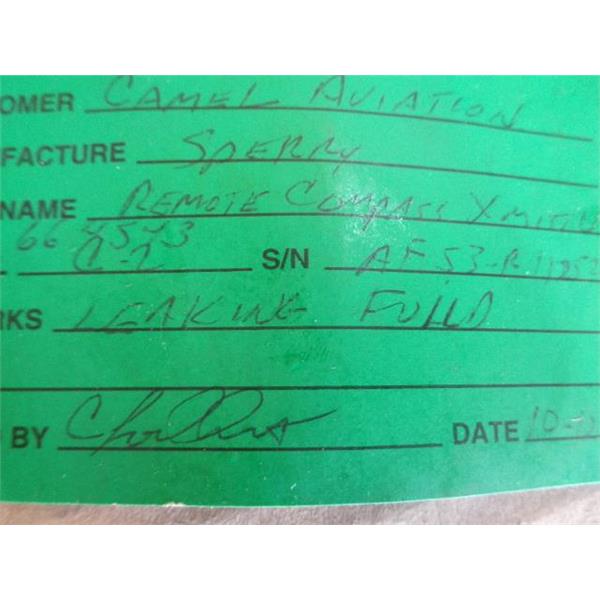 OMER CAMEL AVIATION
FACTURE SPERRY
NAME REMOTE COMPASS XMITTER
664543
C-2 S/N AF53-R
RKS LEAKING FUILD
BY DATE 10-